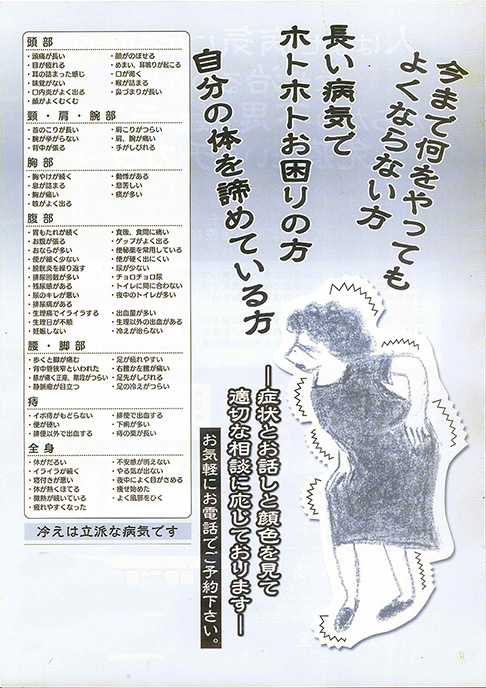 今まで何をやっても
よくならない方
長い病気で
ホトホトお困りの方
自分の体を諦めている方
―症状とお話しと顔色を見て
適切な相談に応じております―
お気軽にお電話でご予約下さい。
頭部
・頭痛が長い ・顔がのぼせる
・目が疲れる ・めまい、耳鳴りが起こる
・耳の詰まった感じ ・口が渇く
・味覚がない ・喉が詰まる
・口内炎がよく出る ・鼻づまりが長い
・顔がよくむくむ
頸・肩・腕部
・首のこりが長い ・肩こりがつらい
・腕が挙がらない ・肩、腕が痛い
・背中が張る ・手がしびれる
胸部
・胸やけが続く ・動悸がある
・息が詰まる ・息苦しい
・胸が痛い ・痰が多い
・咳がよく出る
腹部
・胃もたれが続く ・食後、食間に痛い
・お腹が張る ・ゲップがよく出る
・おならが多い ・便秘薬を常用している
・便が細く少ない ・便が硬く出にくい
・膀胱炎を繰り返す ・尿が少ない
・排尿回数が多い ・チョロチョロ尿
・残尿感がある ・トイレに間に合わない
・尿のキレが悪い ・夜中のトイレが多い
・排尿痛がある
・生理痛でイライラする ・出血量が多い
・生理日が不順 ・生理以外の出血がある
・妊娠しない ・冷えが治らない
腰・脚部
・歩くと脚が痛む ・足が疲れやすい
・背中管狭窄といわれた ・右腰か左腰が痛い
・膝が痛く正座、階段がつらい ・足先がしびれる
・静脈瘤が目立つ ・足の冷えがつらい
痔
・イボ痔がもどらない ・排便で出血する
・便が硬い ・下痢が多い
・排便以外で出血する ・痔の薬が長い
全身
・体がだるい ・不安感が消えない
・イライラが続く ・やる気が出ない
・寝付きが悪い ・夜中によく目がさめる
・体が熱くほてる ・痩せ始めた
・微熱が続いている ・よく風邪をひく
・疲れやすくなった
冷えは立派な病気です